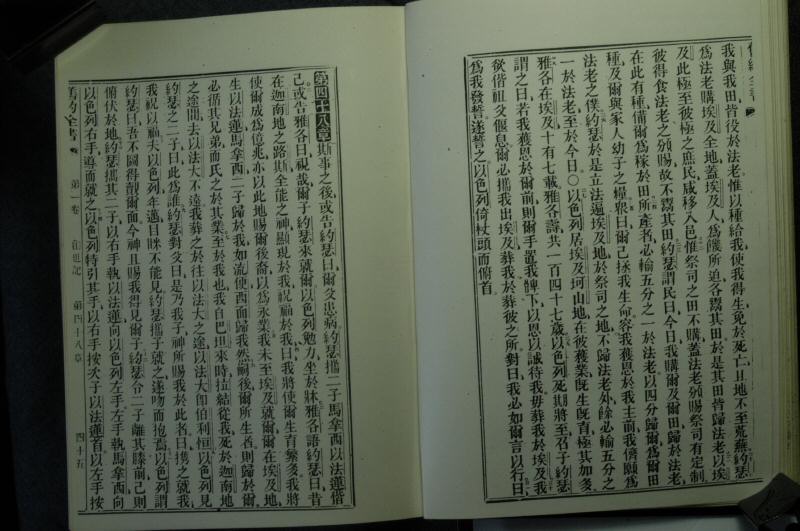 我與我田皆役於法老惟以種給我使我得生免於死亡且地不至荒蕪約瑟
為法老購埃及全地蓋埃及人為饑所迫各鬻其田於是其田皆歸法老以埃
及此極至彼極之庶民咸移入邑惟祭司之田不購蓋法老頒賜祭司有定制
彼得食法老之頒賜故不鬻其田約瑟謂民曰今日我購爾及爾田歸於法老
在此有種備爾為稼於田所產者必輸五分之一於法老以四分歸爾為爾田
種及爾與家人幼子之糧眾曰爾已拯我生命容我獲恩於主前我儕願為
法老之僕約瑟於是立法遍埃及地於祭司之地不歸法老外餘必輸五分之
一於法老至於今日○以色列居埃及坷山地在彼獲業既生既育極其加多
雅各在埃及十有七載雅各壽共一百四十七歲以色列死期將至召子約瑟
謂之曰若我獲恩於爾前則爾手置我髀下以恩以誠待我毋葬我於埃及我
欲偕祖父偃息爾必攜我出埃及葬我於葬彼之所對曰我必如爾言以行曰
為我發誓遂誓之以色列倚杖頭而俯首
第四十八章斯事之後或告約瑟曰爾父患病約瑟攜二子馬拿西以法蓮偕
己或告雅各曰視哉爾子約瑟來就爾以色列勉力坐於牀雅各語約瑟曰昔
在迦南地之路斯全能之神顯現於我祝福於我曰我將使爾生育繁多我將
使爾成為億兆亦以此地賜爾後裔以為永業我未至埃及就爾爾在埃及地
生以法蓮馬拿西二子歸於我如流便西面歸我然嗣後爾所生者則歸於爾
必循其兄弟而氏之於其業至於我也我自巴坦來時拉結從我死於迦南地
之途間去以法大不遠我葬之於往以法大之途以法大即伯利恆以色列見
約瑟之二子曰此為誰約瑟對父曰是乃我子神所賜我於此者曰攜之就我
我祝以福夫以色列年邁目眯不能見約瑟攜子就之遂吻而抱焉以色列謂
約瑟曰吾不圖得覩爾面今神且賜我得見爾子約瑟令二子離其膝前己則
俯伏於地約瑟攜其二子以右手執以法蓮向以色列左手左手執馬拿西向
以色列右手導而就之以色列特引其手以右手按次子以法蓮首以左手按
舊約全書 第一卷 創世記 第四十八章 四十五